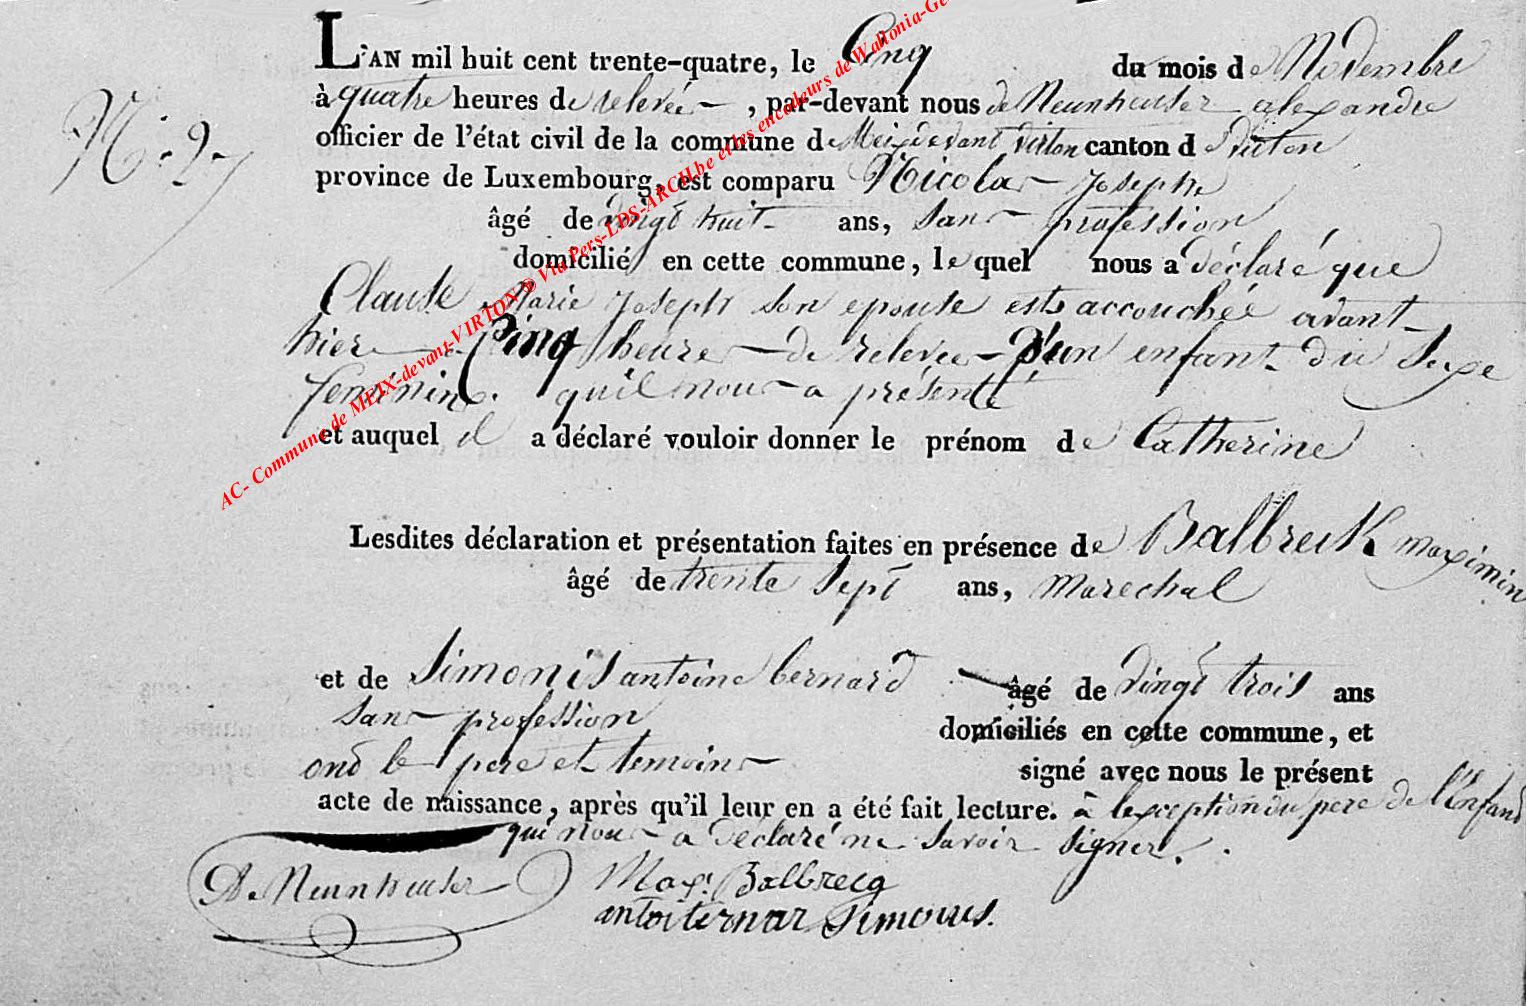 L'AN mil huit cent trente-quatre, le Cinq du mois de Novembre
à quatre heures de relevée, par-devant nous de Neunheuser alexandre
officier de l'état civil de la commune de Meix devant virton canton d virton
province de Luxembourg, est comparu Nicolas Josephe
âgé de vingt huit ans, sans profession
domicilié en cette commune, lequel nous a déclaré que
Claude Marie Joseph son epouse est accouchée avant
hier a Cinq heures de relevée D'un enfant du Sexe
feminin. qu'il nous a présenté
et auquel il a déclaré vouloir donner le prénom de Catherine
Lesdites déclaration et présentation faites en présence de Balbreck maximin
âgé de trente sept ans, marechal
et de Simonis antoine bernard âgé de vingt trois ans
sans profession domiciliés en cette commune, et
ond le pere et temoins signé avec nous le présent
acte de naissance, après qu'il leur en a été fait lecture. à lexception du pere de l'enfand
qui nous a déclaré ne savoir signer.
De Neunheuser Max. Balbrecq
Simonis.
AC- Commune de MEIX-devant-VIRTON © Via Pers-LDS-ARCH.be et les encodeurs de Wallonia-Ge